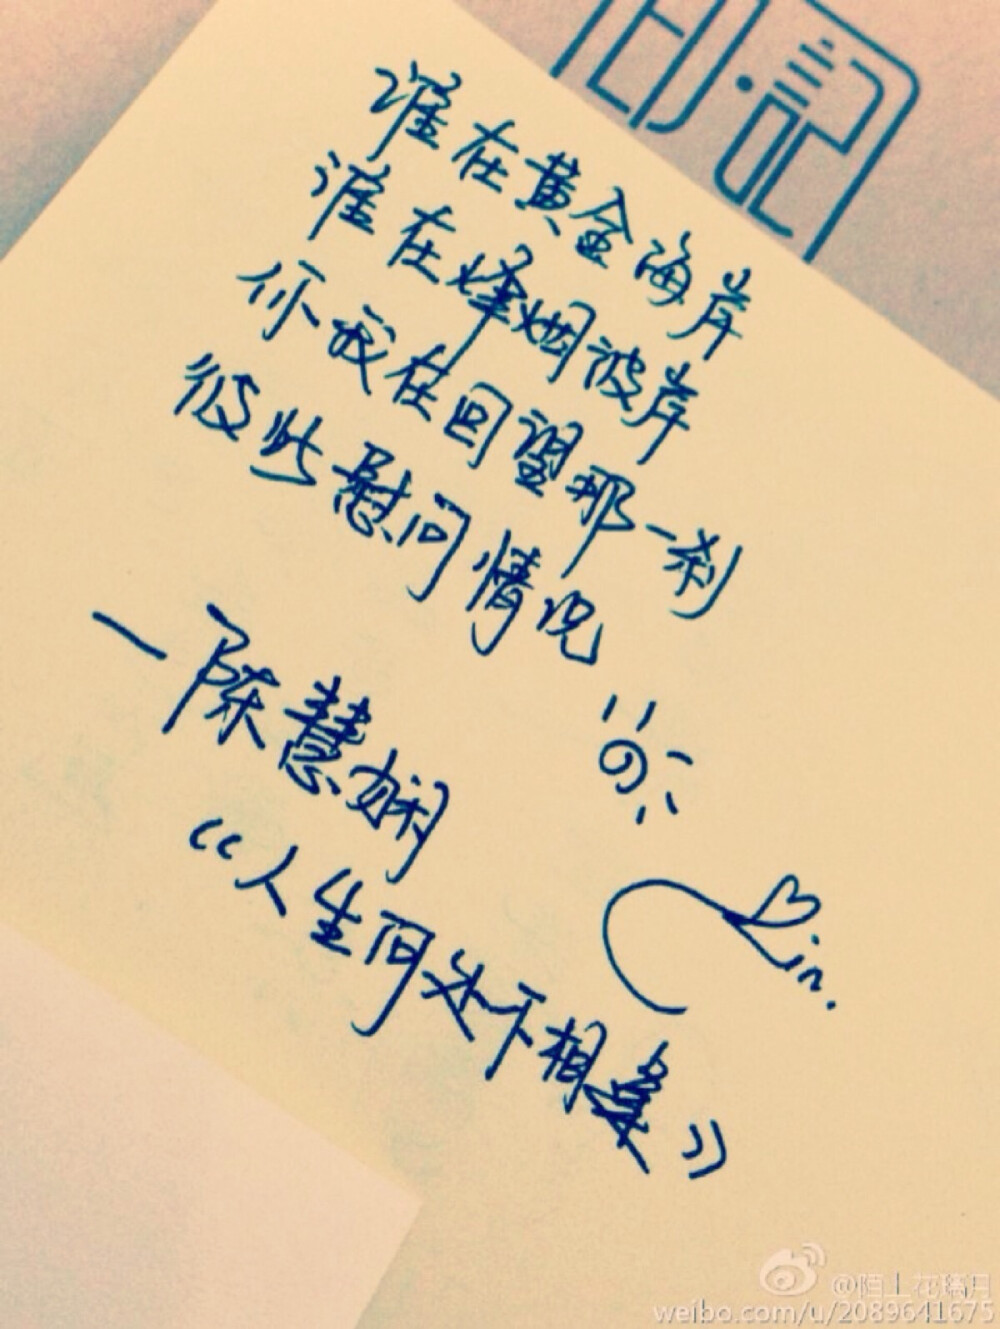 印·記
谁在黄金海岸
谁在烽烟彼岸
你我在回望那一刹
彼此慰问情况
—陈慧娴
《人生何处不相逢》
Lin.
@陌上花璃月
weibo.com/u/2089641675